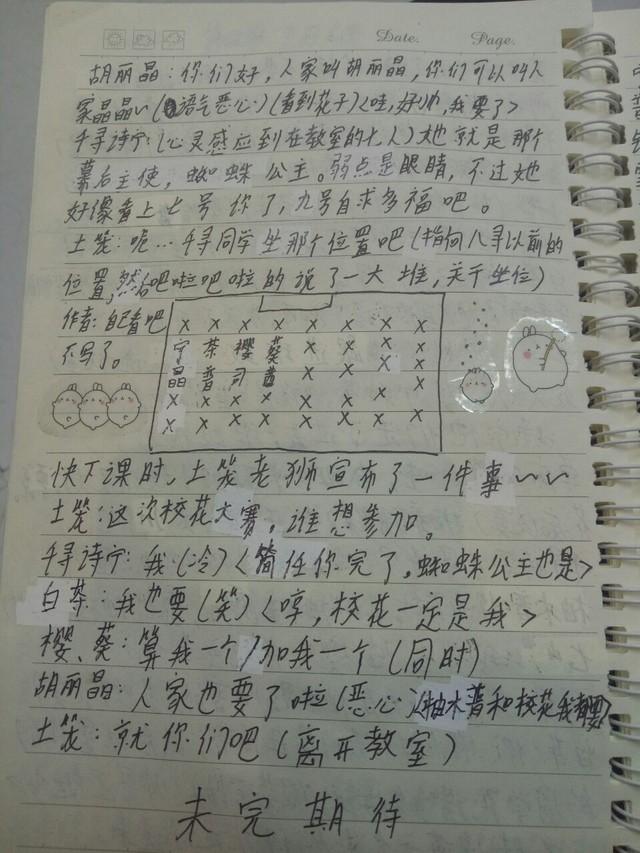 Date. Page.
胡丽晶：你们好，人家叫胡丽晶，你们可以叫人
家晶晶~（语气恶心）（看到花子）<哇，好帅，我要了>
千寻诗宁：（心灵感应到在教室的七人）她就是那个
幕后主使，蜘蛛公主。弱点是眼睛，不过她
好像看上七号你了，九号自求多福吧。
土笼：呃…千寻同学坐那个位置吧（指向八寻以前的
位置，然后吧啦吧啦的说了一大堆，关于坐位）
作者：自己看吧
不写了。
x x x x x x x x
宁 茶 樱 葵 x x x x
晶 普 司 茜 x x x x
x x x x x x x x
x x x x x x x x
快下课时，土笼老狮宣布了一件事~~
土笼：这次校花大赛，谁想参加。
千寻诗宁：我（冷）<简任你完了。蜘蛛公主也是>
白茶：我也要（笑）<哼，校花一定是我>
樱、葵：算我一个/加我一个（同时）
胡丽晶：人家也要了啦（恶心）<柚木普和校花我都要>
土笼：就你们吧（离开教室）
未完期待